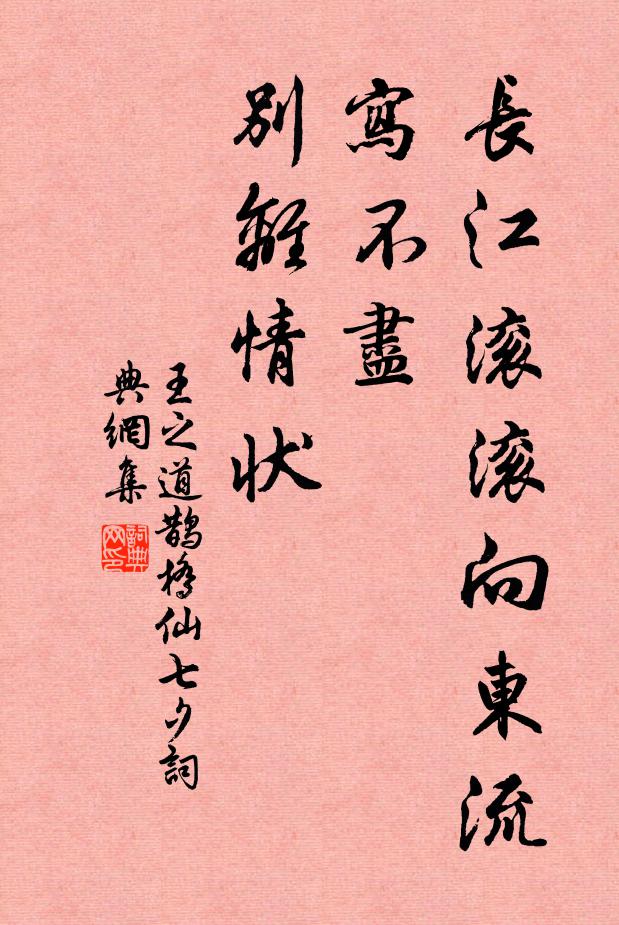 長江滚滚向東流
寫不盡
別離情状
王之道鵲橋仙七夕詞
典網集
詞典
网印